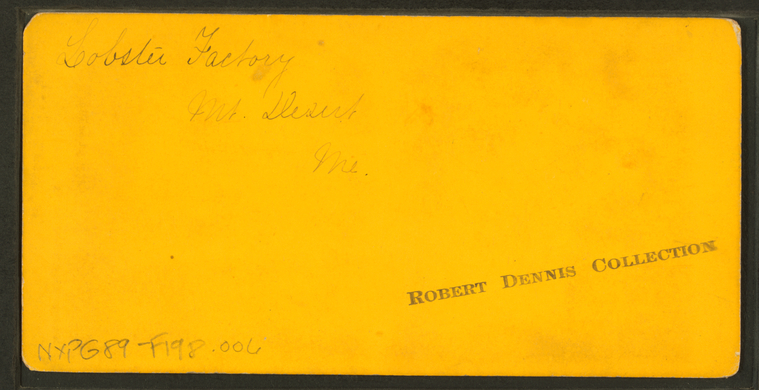 Lobster Factory
Mt. Desert
Me.
ROBERT DENNIS COLLECTION
NYPG89-F198.006